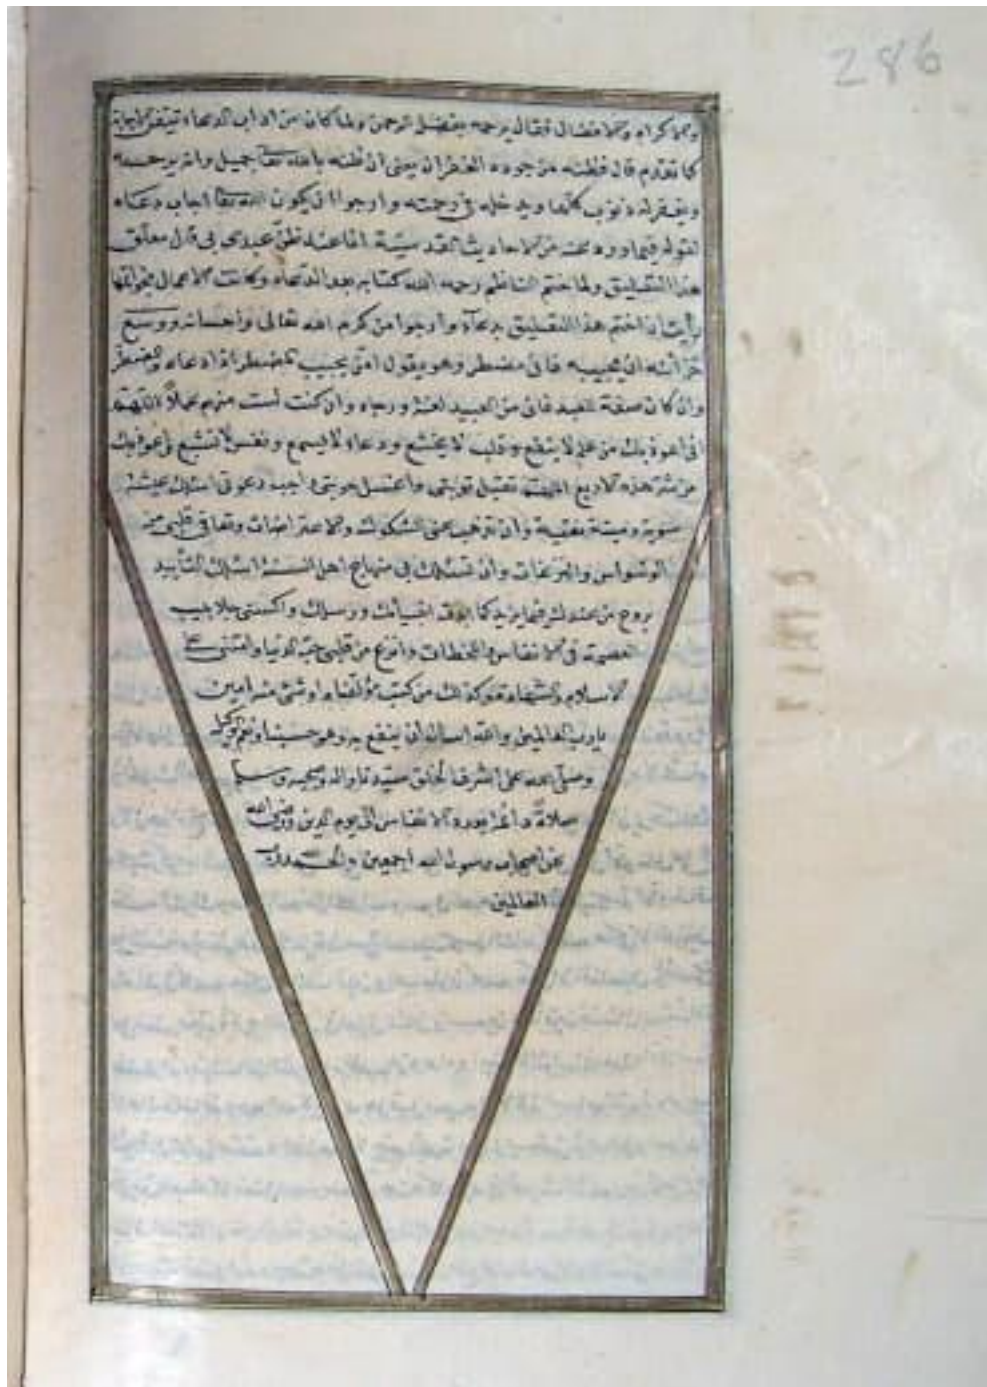 286
والاكرام والافضال فقال يرحمه بفضل الرحمن ولما كان من اداب الدعاء تيقن الاجابة
كما تقدم قال فظنه من جوده الغفران يعنى ان ظنه بالله تعا جميل وانه يرحمه
ويغفر له ذنوبه كلها ويدخله فى رحمته وارجوا ان يكون الله تعا اجاب دعاه
لقوله فيما ورد عنه من الاحاديث القدسية انا عند ظن عبدى بى قال معلق
هذا التعليق ولما ختم الناظم رحمه الله كتابه بعد الدعاء وكانت الاعمال بخواتمها
رأيت ان اختم هذا التعليق بدعاء وارجوا من كرم الله تعالى واحسانه ووسع
خزائنه ان يجيبه فانى مضطر وهو يقول امن يجيب المضطر اذا دعاه والمضطر
وان كان صفة للعبد فانى من العبيد لغة ورجاء وان كنت لست منهم عملاً اللهم
انى اعوذ بك من علم لا ينفع وقلب لا يخشع ودعاء لا يسمع ونفس لا تشبع اعوذ بك
من شر هذه الاربع اللهم تقبل توبتى واغسل حوبتى واجب دعوتى اسئلك عيشة
سوية وميتة نقية وان تذهب عنى الشكوك والاعتراضات وتعافى قلبى من
الوسواس والنزغات وان تسلك بى منهاج اهل السنة اسئلك التأييد
بروح من عندك فيما نريد كما انبيائك ورسلك واكسنى جلابيب
العصمة فى الانفاس واللحظات وانزع من قلبى حب الدنيا وامتنى على
الاسلام والشهادة وكذلك من كتب مؤلفنا او شئ منه امين
يا رب العالمين والله اسأل ان ينفع به وهو حسبنا ونعم الوكيل
وصلى الله على اشرف الخلق سيدنا واله وصحبه وسلم
صلاةً دائمة بعدد الانفاس الى يوم الدين ورضى الله
عن اصحاب رسول الله اجمعين والحمد لله رب
العالمين